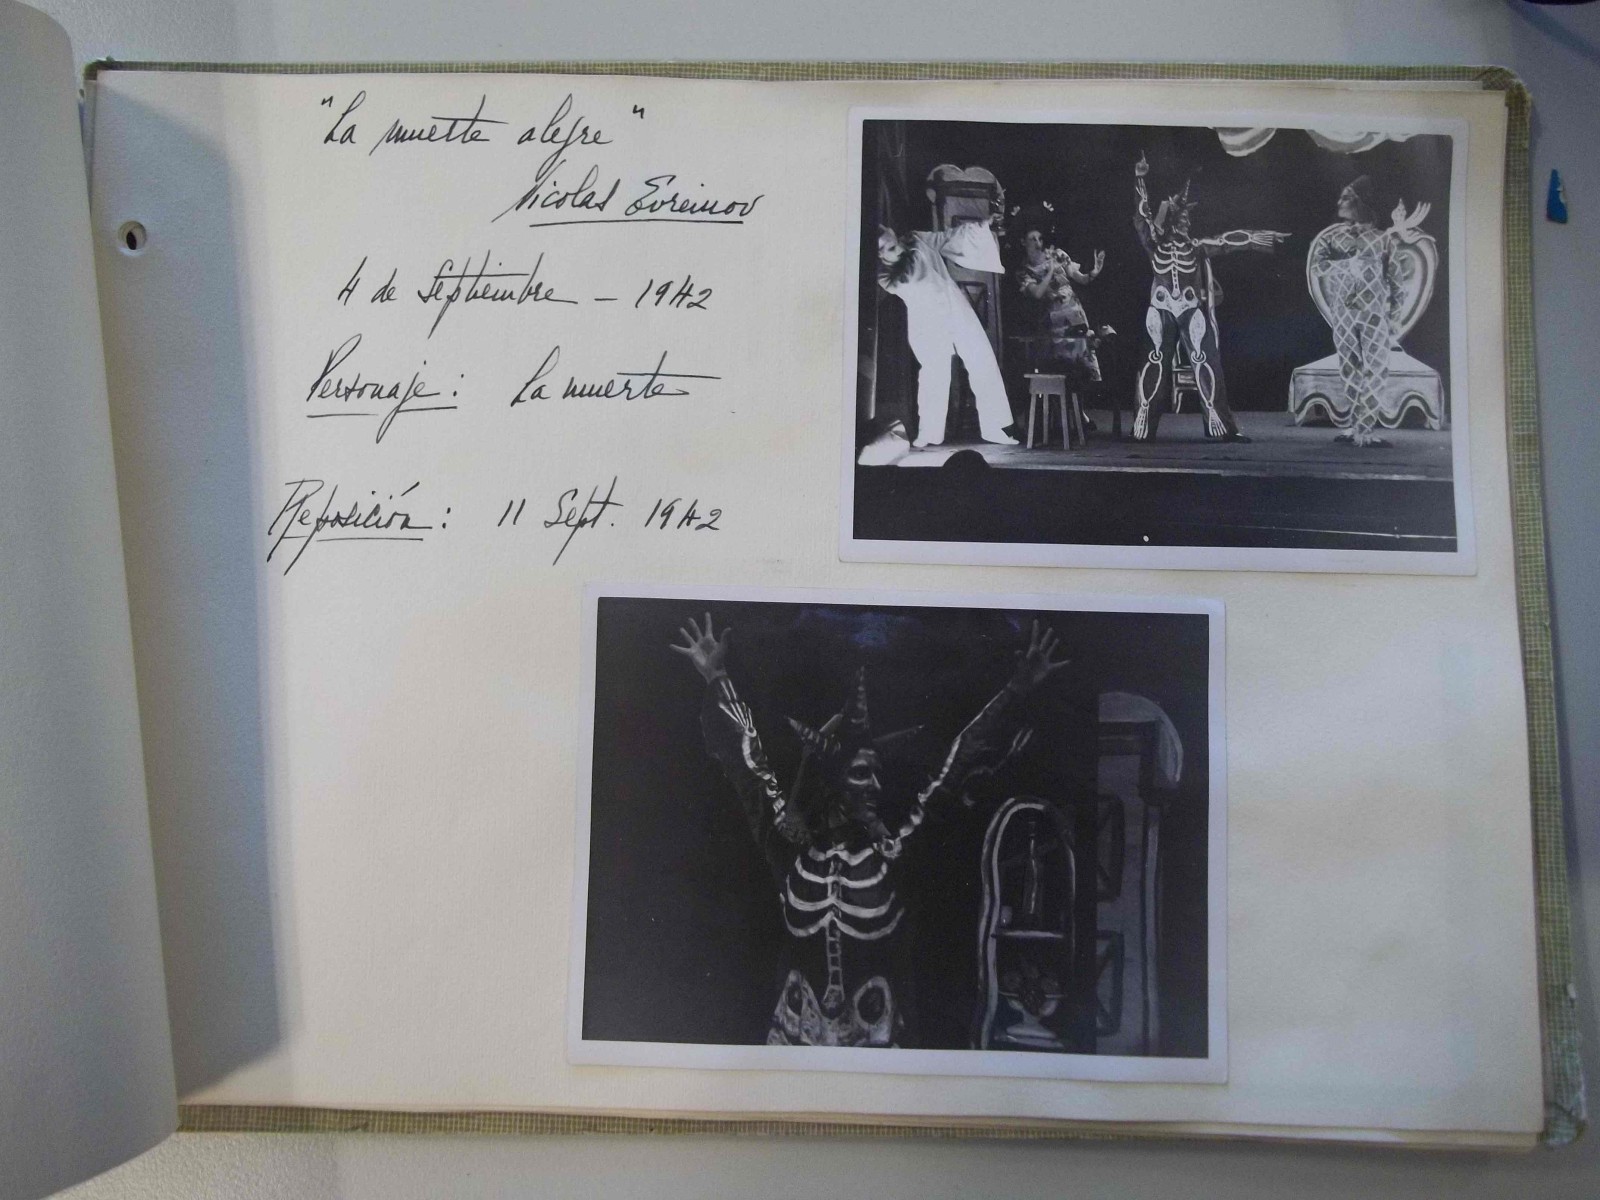 "La muerte alegre"
Nicolas Evreinov
4 de Septiembre - 1942
Personaje: La muerte
Reposición: 11 Sept. 1942